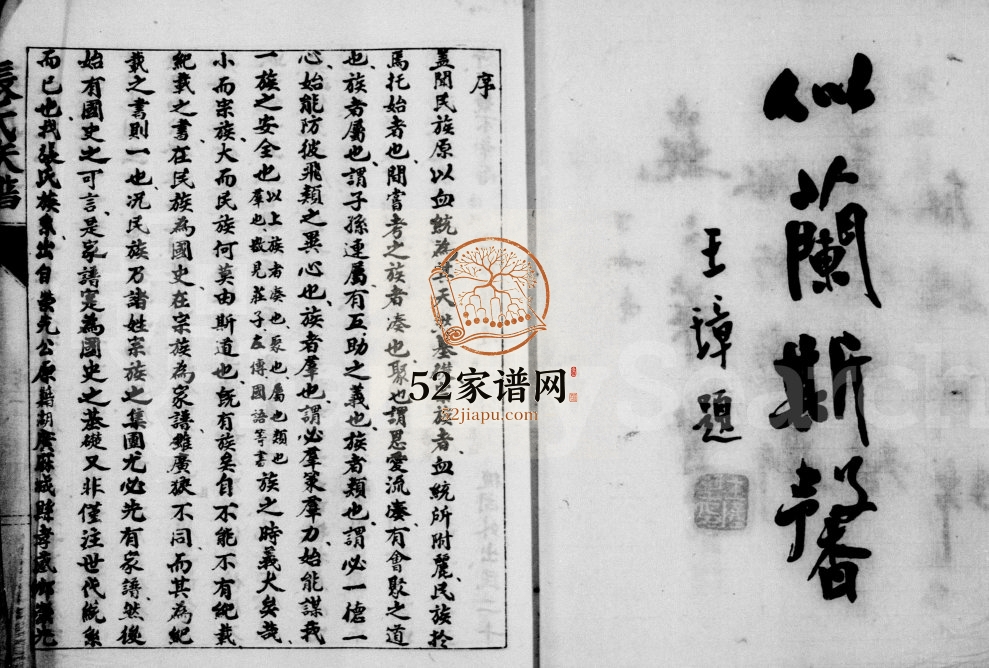 似蘭斯馨
王璋題
序
蓋聞民族原以血統為其天然基礎族者血統所附麗民族於
焉托始者也間嘗考之族者湊也聚也謂恩愛流湊有會聚之道
也族者屬也謂子孫連屬有互助之義也族者類也謂必一德一
心始能防彼飛類之異心也族者羣也謂必羣策羣力始能謀我
一族之安全也以上族者湊也聚也屬也類也羣也散見莊子左傳國語等書族之時義大矣哉
小而宗族大而民族何莫由斯道也既有族矣自不能不有紀載
紀載之書在民族為國史在宗族為家譜雖廣狹不同而其為紀
載之書則一也況民族乃諸姓宗族之集團尤必先有家譜然後
始有國史之可言是家譜寔為國史之基礎又非僅注世代統系
而已也我張氏族系出自榮光公原籍湖廣麻城縣孝感鄉
張氏族譜
52家谱网
52jiapu.com